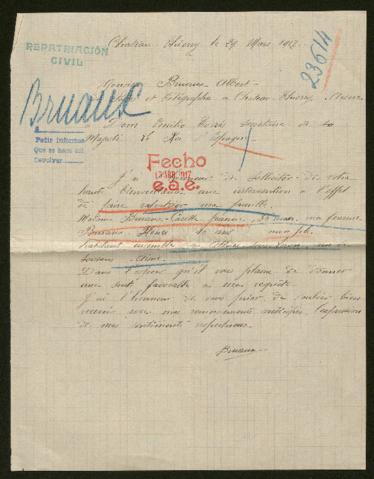 Château Thierry le 29 Mars 1917.
REPATRIACIÓN
CIVIL
23614
Monsieur Bruaux Albert
et Télégraphes à Château Thierry, Aisne
Bruaux
à Dom Emilio Secrétaire de Sa
Majesté le Roi d'Espagne
Pedir informes
Que se haga así.
Devolver
Fecho
13 ABR. 1917
e.a.e.
J'ai l'honneur de solliciter de votre
haute bienveillance une intervention à l'effet
de faire rapatrier ma famille.
Madame Bruaux ma femme
Bruaux mon fils
habitant ensemble
Aisne
Dans l'espoir qu'il vous plaira de donner
une suite favorable à ma requête
J'ai l'honneur de vous prier de vouloir bien
recevoir avec mes remerciements anticipés, l'expression
de mes sentiments respectueux.
Bruaux